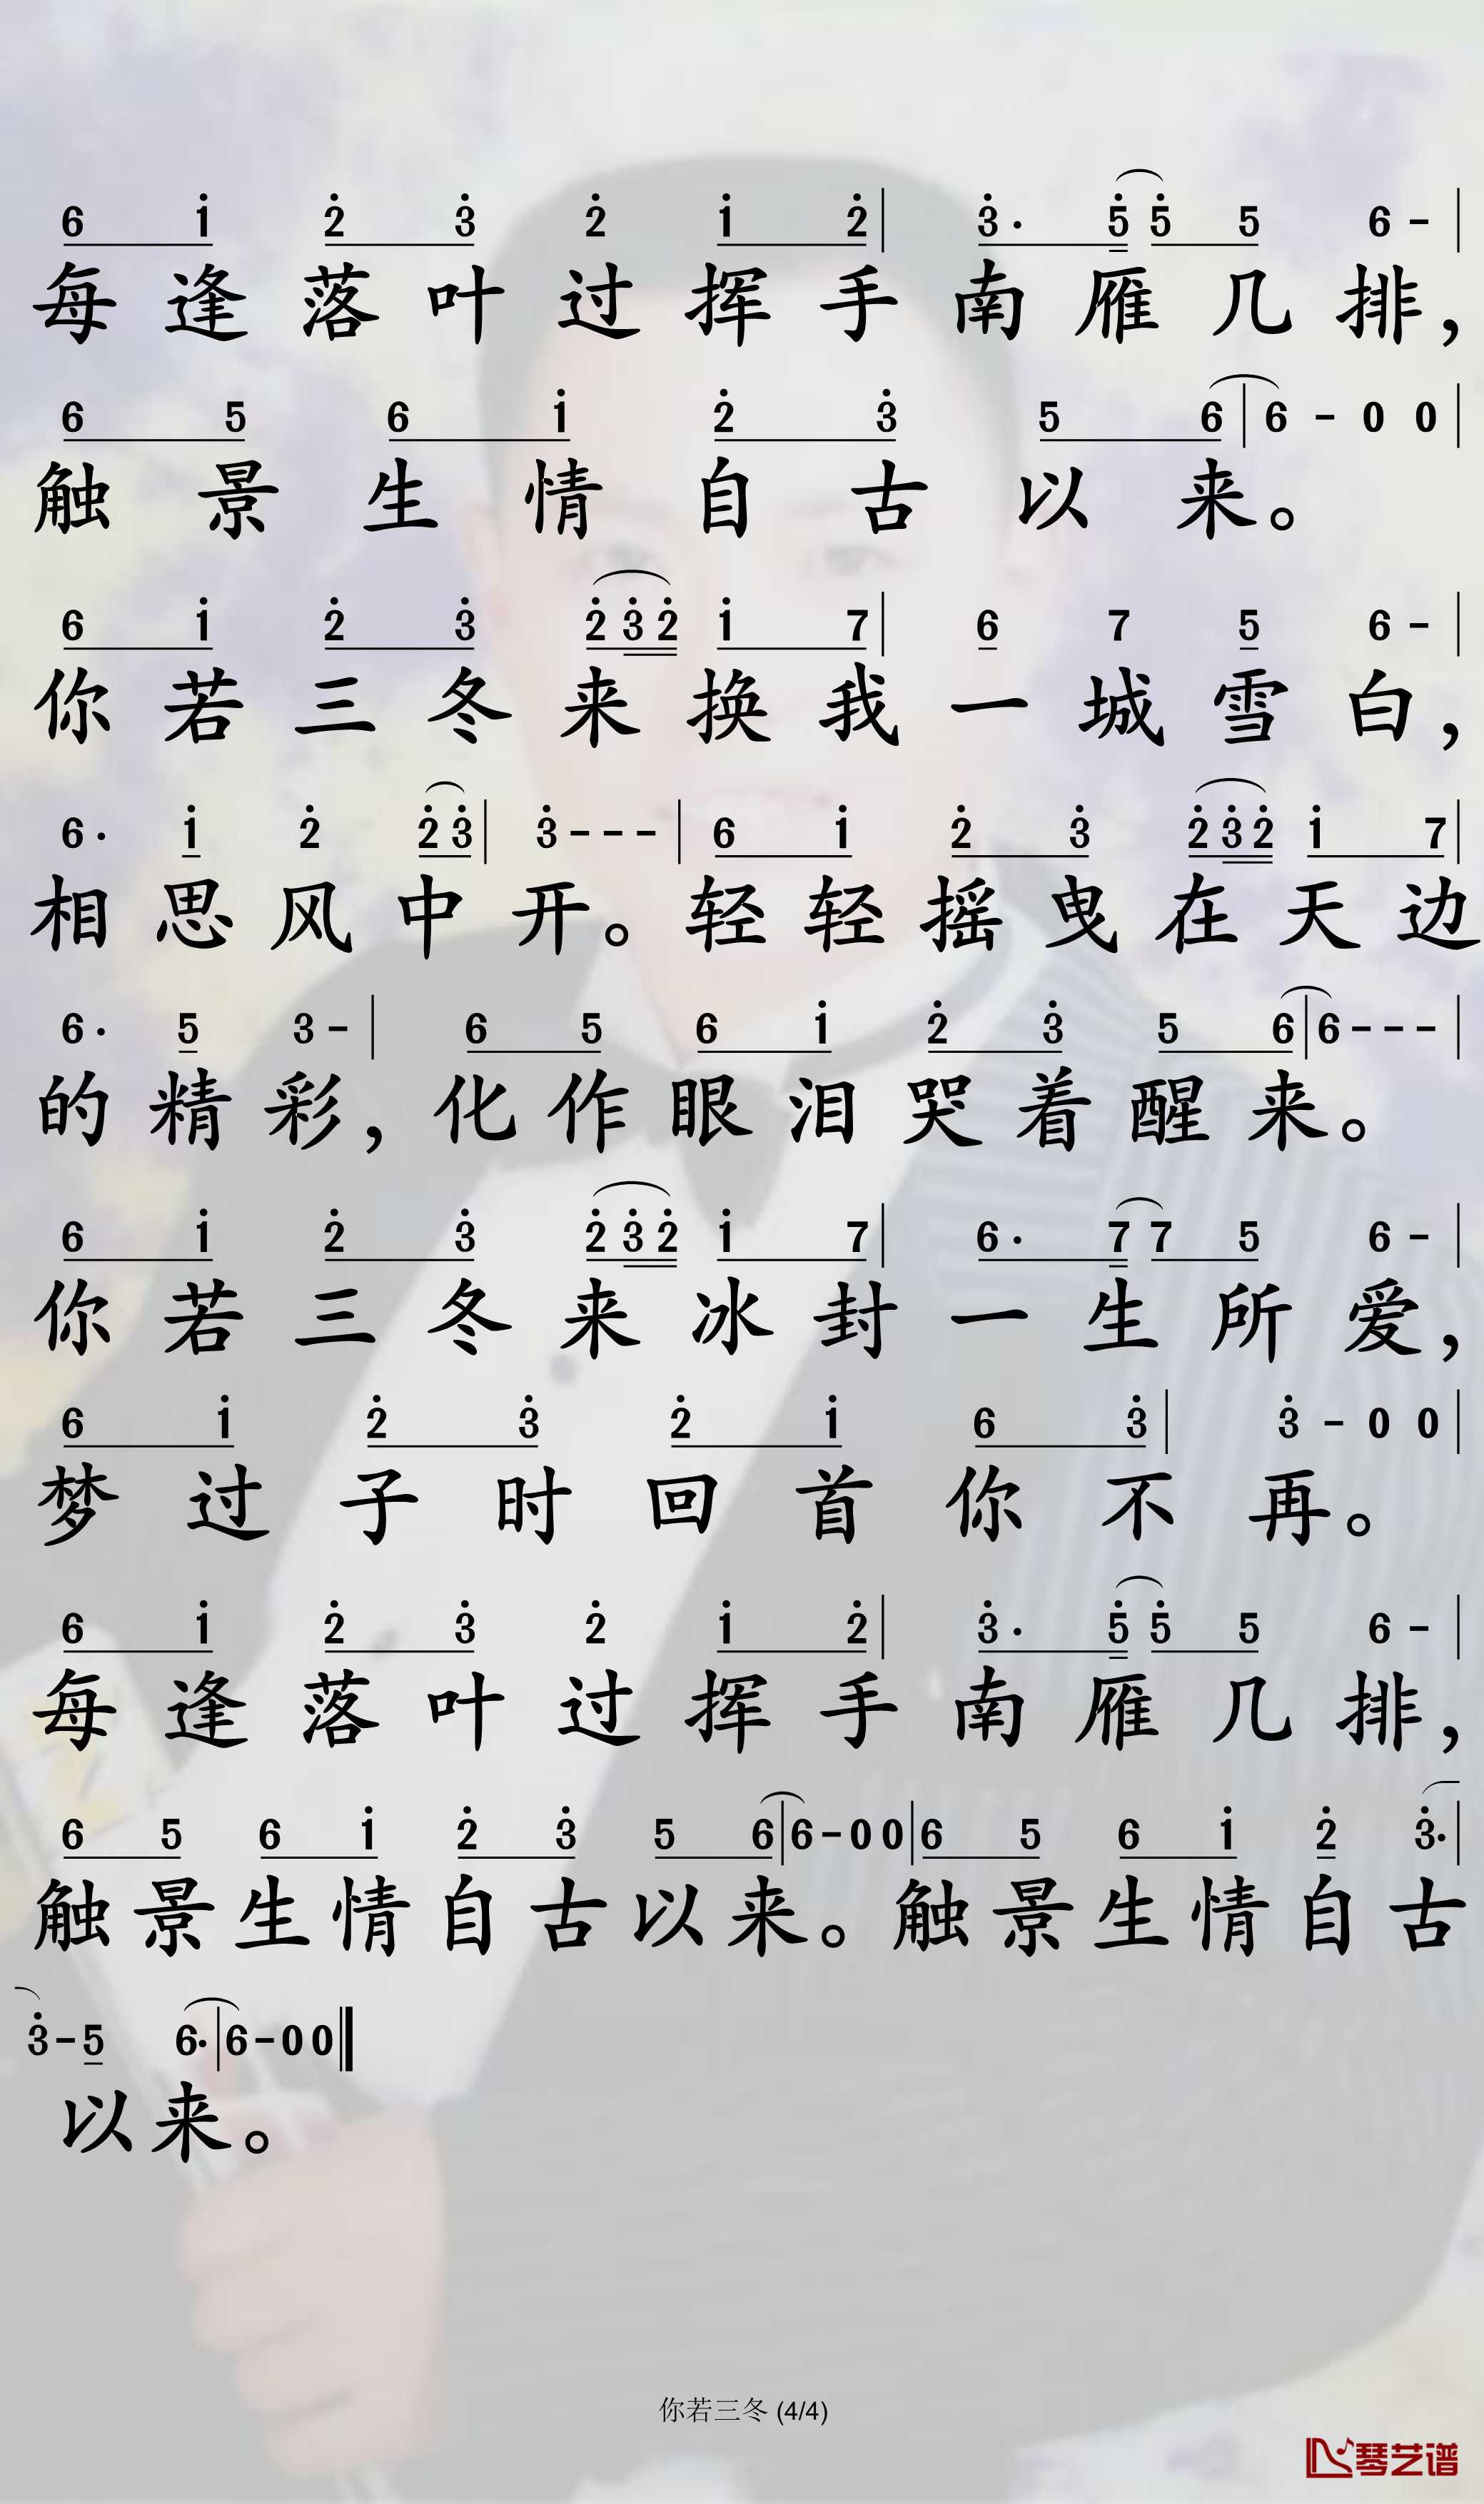 6 1̇ 2̇ 3̇ 2̇ 1̇ 2̇ | 3̇· 5̇ 5̇ 5 6 - |
每逢落叶过挥手南雁几排，
6 5 6 1̇ 2̇ 3̇ 5 6 | 6 - 0 0 |
触景生情自古以来。
6 1̇ 2̇ 3̇ 2̇ 3̇ 2̇ 1̇ 7 | 6 7 5 6 - |
你若三冬来换我一城雪白，
6· 1̇ 2̇ 2̇ 3̇ | 3̇ - - - | 6 1̇ 2̇ 3̇ 2̇ 3̇ 2̇ 1̇ 7 |
相思风中开。轻轻摇曳在天边
6· 5 3 - | 6 5 6 1̇ 2̇ 3̇ 5 6 | 6 - - - |
的精彩，化作眼泪哭着醒来。
6 1̇ 2̇ 3̇ 2̇ 3̇ 2̇ 1̇ 7 | 6· 7 7 5 6 - |
你若三冬来冰封一生所爱，
6 1̇ 2̇ 3̇ 2̇ 1̇ 6 3̇ | 3̇ - 0 0 |
梦过子时回首你不再。
6 1̇ 2̇ 3̇ 2̇ 1̇ 2̇ | 3̇· 5̇ 5̇ 5 6 - |
每逢落叶过挥手南雁几排，
6 5 6 1̇ 2̇ 3̇ 5 6 | 6 - 0 0 | 6 5 6 1̇ 2̇ 3̇· |
触景生情自古以来。触景生情自古
3̇ - 5 6· | 6 - 0 0 ‖
以来。
你若三冬 (4/4)
琴艺谱